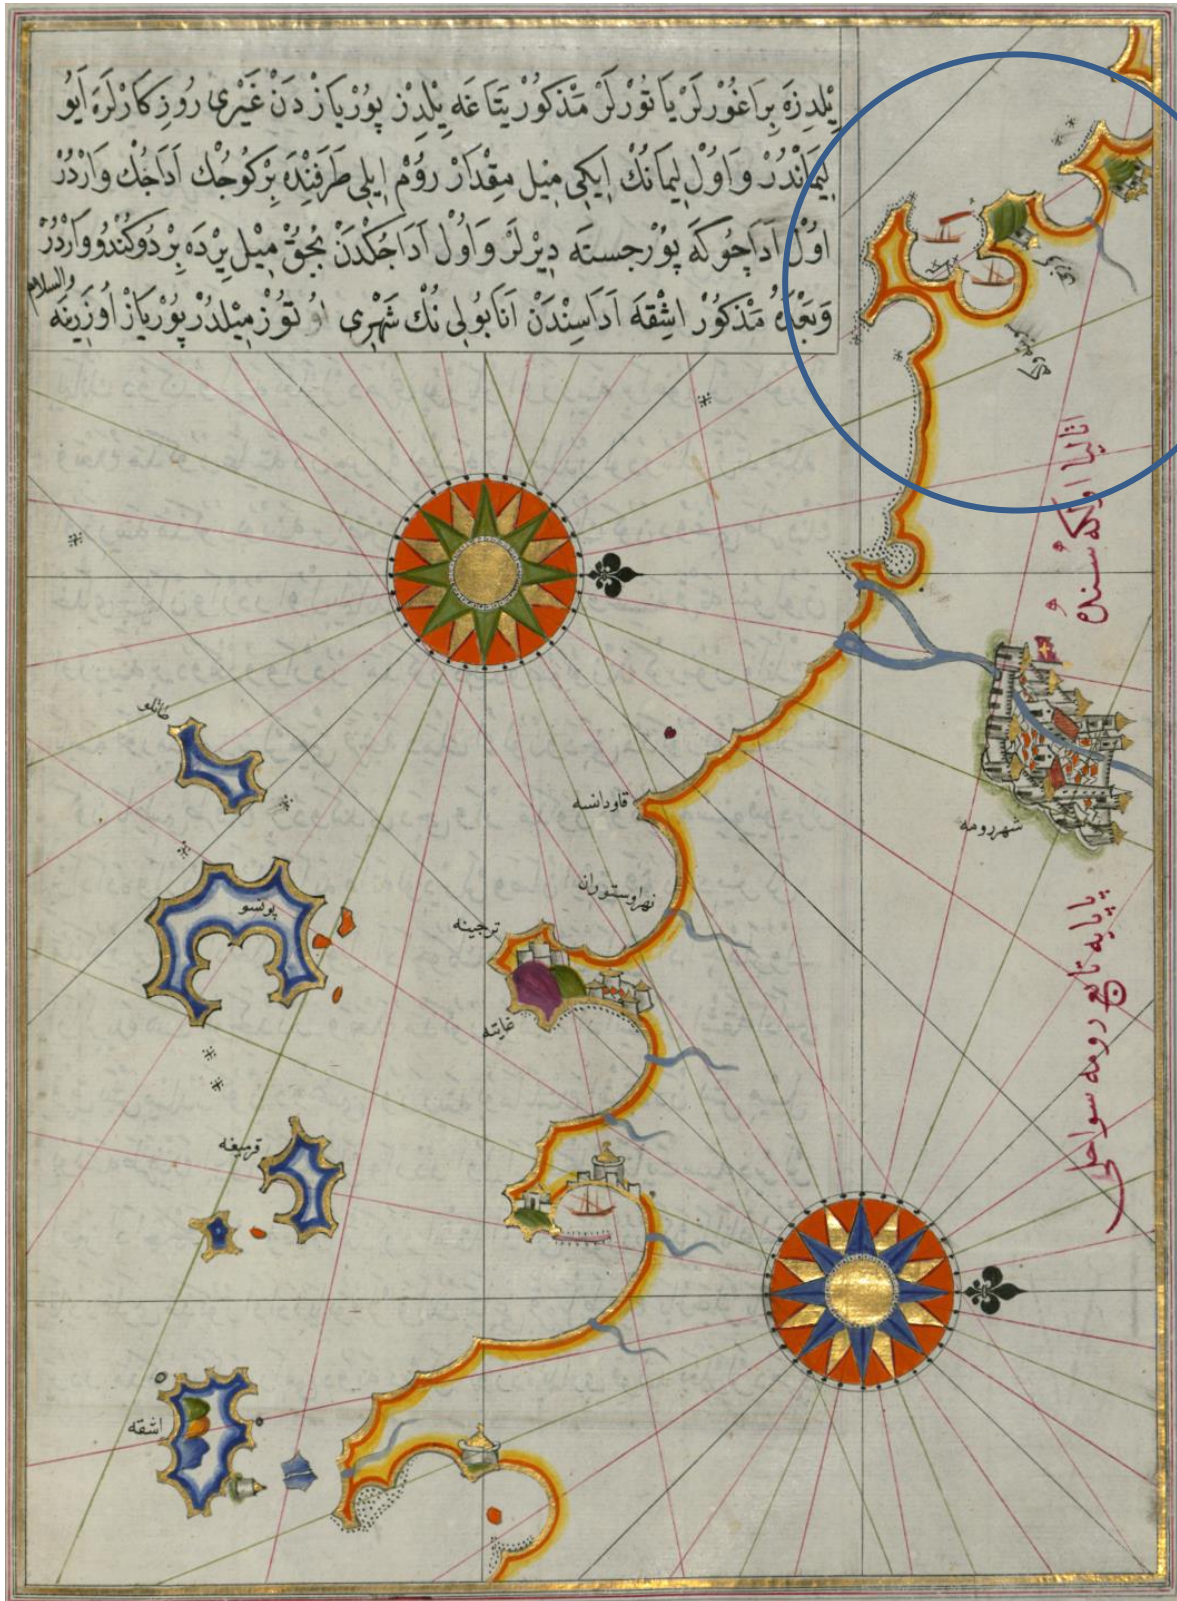 يِلدِزَه بِرَاغُورْلَرْ يَا تُورْلَرْ مَذْكُورْ يَتَاغَه يِلْدِزْ پُورْيَازْ دَنْ غَيْرِى رُوزِكَارْلَرَه اَيُو
لِيمَانْدُرْ وَاوُلْ لِيمَانُكْ اِيكِى مِيلْ مِقْدَارْ رُومْ اِيلِى طَرَفِنْدَه بِرْ كُوجُكْ اَدَاجُكْ وَارْدُرْ
اوُلْ اَدَاجُوكَه پُورْجسْتَه دِيرْلَرْ وَاوُلْ اَدَاجُكْدَنْ بُجُقْ مِيلْ يِرْدَه بِرْ دُوكُنْدُو وَارْدُرْ
وَبَعْدَهُ مَذْكُورْ اشْقَه اَدَاسِنْدَنْ اَنَابُولِى نُكْ شَهْرِى اوُتُوزْ مِيْلدُرْ پُورْيَازْ اُوزَرِينَه
والسلام
اتاليا اولكه سنده
شهر رومه
قاودانسه
نهر اوستوران
پونسو
ترجينه
غايته
پاپايه تابع رومه سواحلى
اشقه